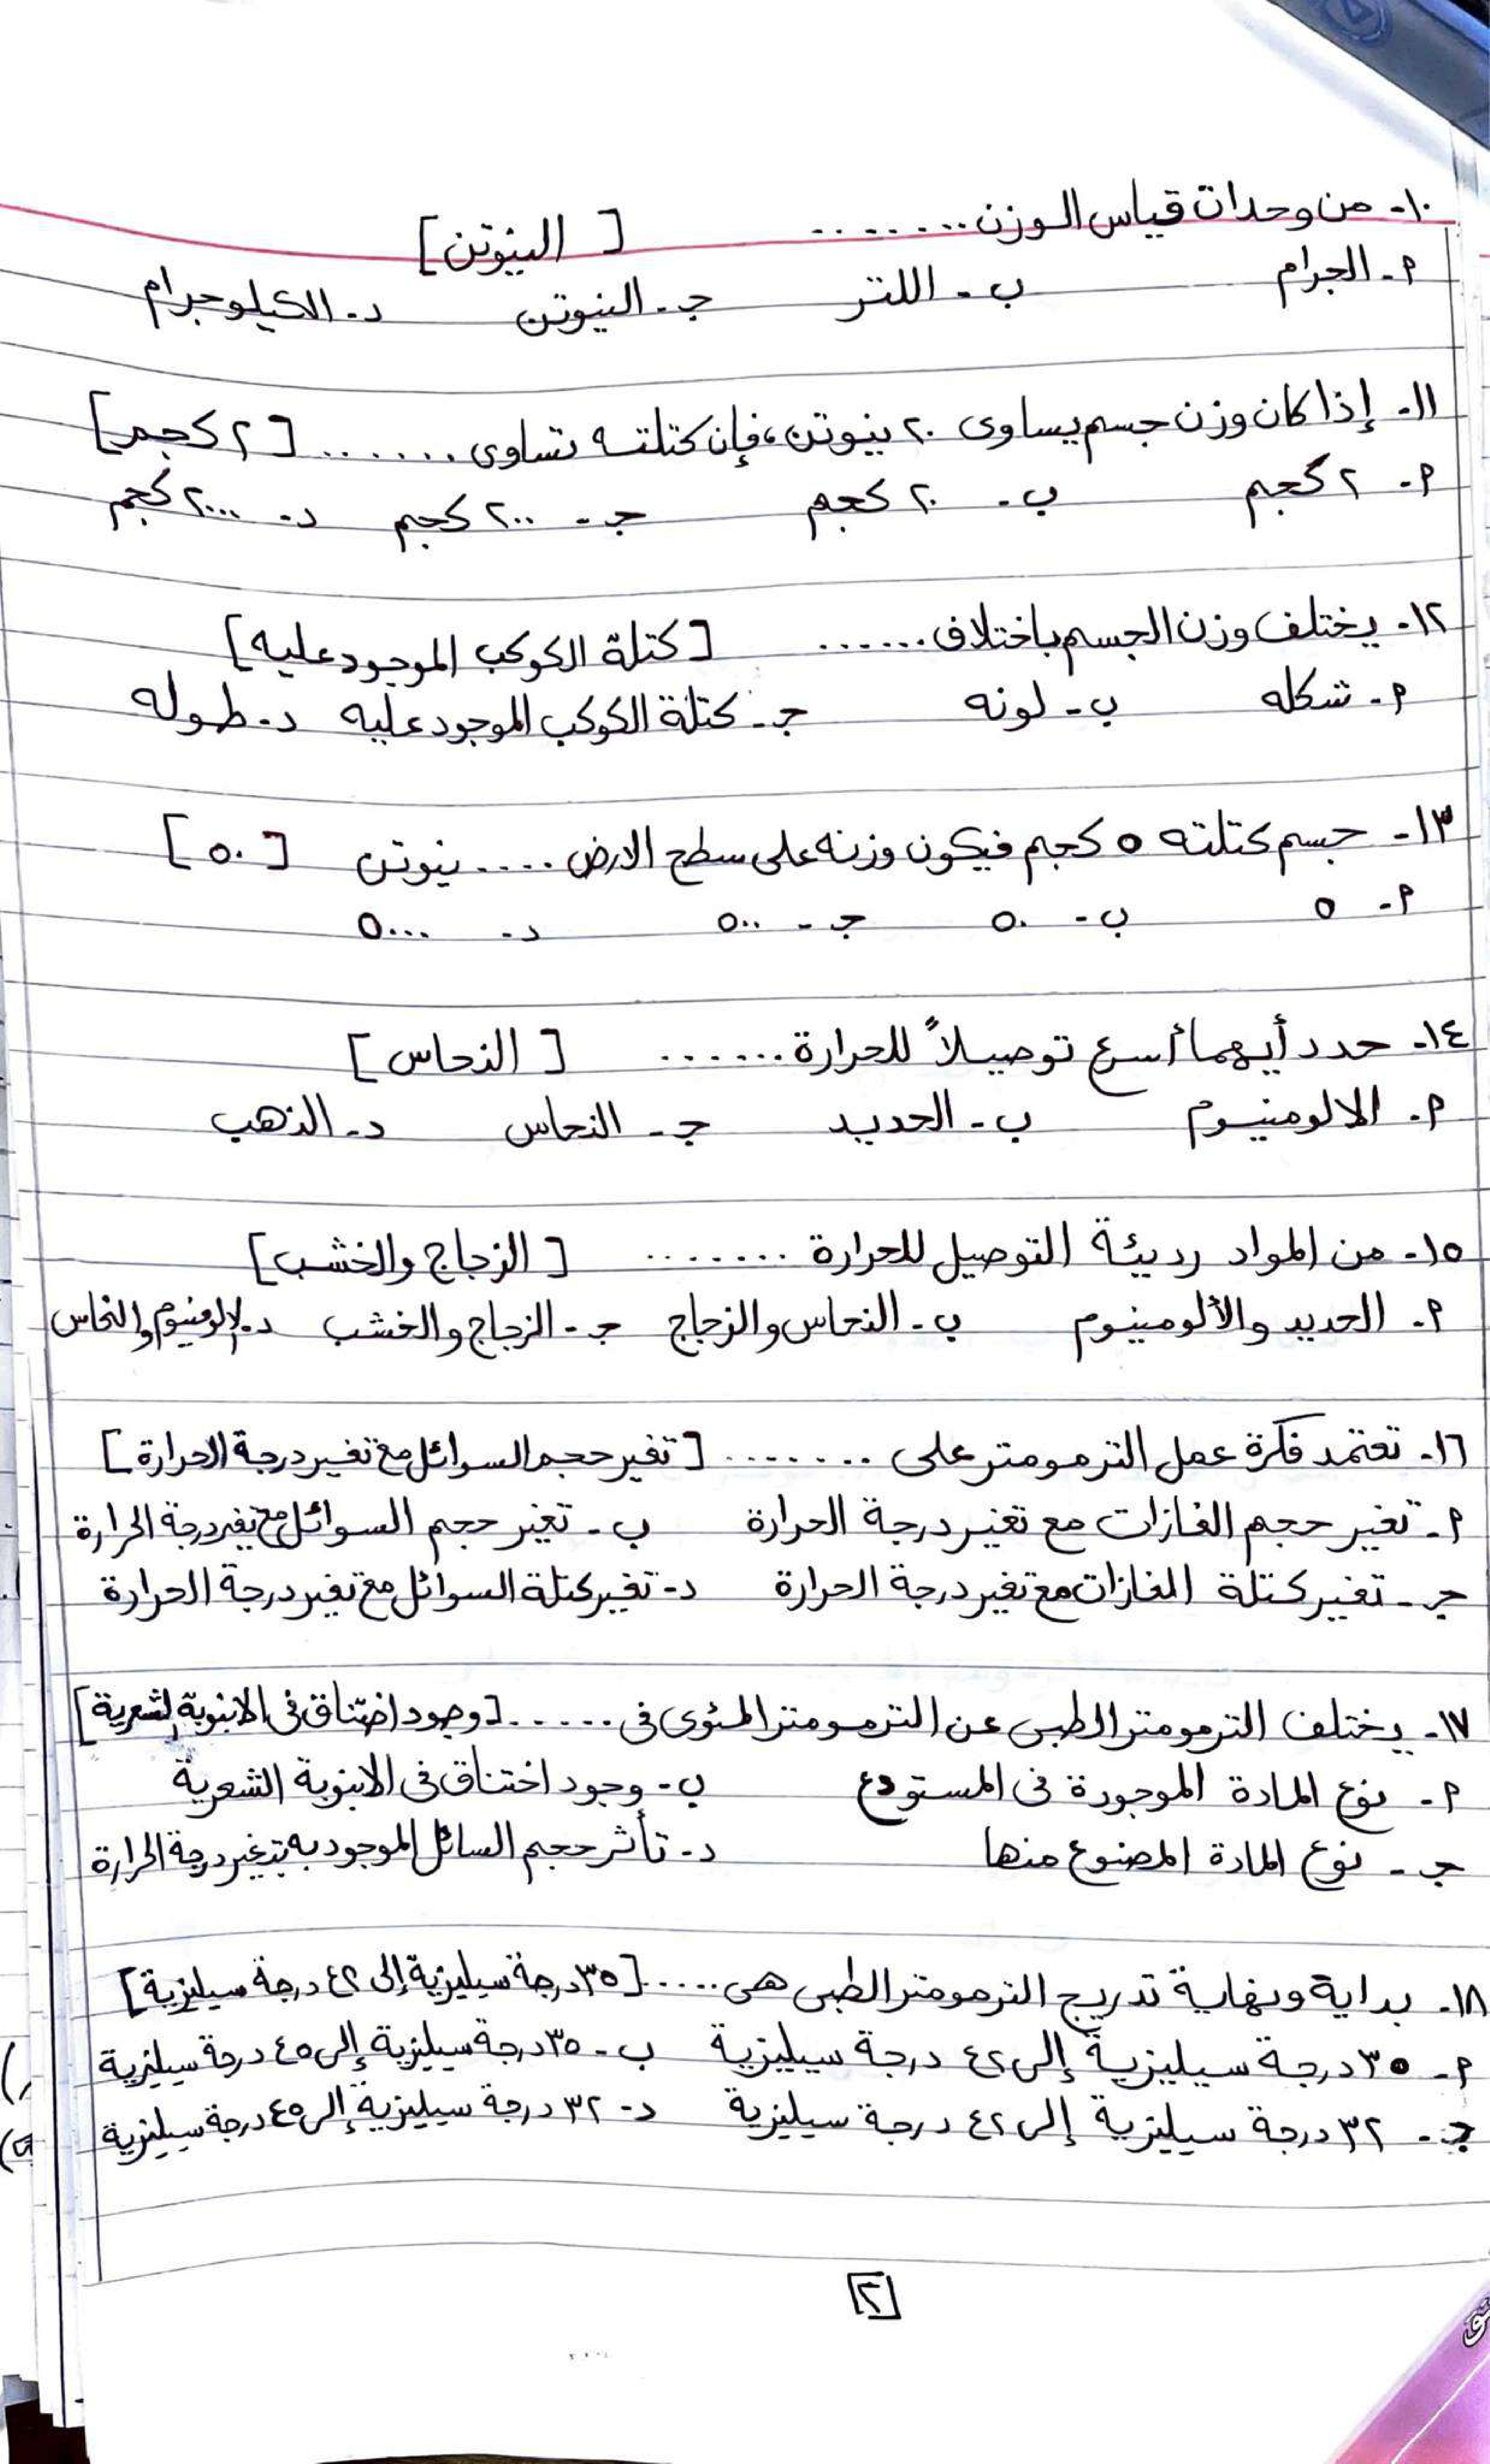 ١٠- من وحدات قياس الوزن ........ [ النيوتن ]
أ- الجرام ب- اللتر ج- النيوتن د- الكيلوجرام
١١- إذا كان وزن جسم يساوى ٢٠ نيوتن، فإن كتلته تساوى ....... [ ٢ كجم ]
أ- ٢ كجم ب- ٢٠ كجم ج- ٢٠٠ كجم د- ٢٠٠٠ كجم
١٢- يختلف وزن الجسم باختلاف ...... [ كتلة الكوكب الموجود عليه ]
أ- شكله ب- لونه ج- كتلة الكوكب الموجود عليه د- طوله
١٣- جسم كتلته ٥ كجم فيكون وزنه على سطح الارض ..... نيوتن [ ٥٠ ]
أ- ٥ ب- ٥٠ ج- ٥٠٠ د- ٥٠٠٠
١٤- حدد أيهما أسرع توصيلاً للحرارة ...... [ النحاس ]
أ- الالومنيوم ب- الحديد ج- النحاس د- الذهب
١٥- من المواد رديئة التوصيل للحرارة ....... [ الزجاج والخشب ]
أ- الحديد والألومينيوم ب- النحاس والزجاج ج- الزجاج والخشب د- الالومنيوم والنحاس
١٦- تعتمد فكرة عمل الترمومتر على ....... [ تغير حجم السوائل مع تغير درجة الحرارة ]
أ- تغير حجم الغازات مع تغير درجة الحرارة ب- تغير حجم السوائل مع تغير درجة الحرارة
ج- تغير كتلة الغازات مع تغير درجة الحرارة د- تغير كتلة السوائل مع تغير درجة الحرارة
١٧- يختلف الترمومتر الطبى عن الترمومتر المئوى فى ...... [ وجود اختناق فى الانبوبة الشعرية ]
أ- نوع المادة الموجودة فى المستودع ب- وجود اختناق فى الانبوبة الشعرية
ج- نوع المادة المصنوع منها د- تأثر حجم السائل الموجود به بتغير درجة الحرارة
١٨- بداية ونهاية تدريج الترمومتر الطبى هى ..... [ ٣٥ درجة سيليزية إلى ٤٢ درجة سيليزية ]
أ- ٣٥ درجة سيليزية إلى ٤٢ درجة سيليزية ب- ٣٥ درجة سيليزية إلى ٤٥ درجة سيليزية
ج- ٣٢ درجة سيليزية إلى ٤٢ درجة سيليزية د- ٣٢ درجة سيليزية إلى ٤٥ درجة سيليزية
[٢]